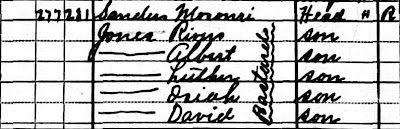 277 281 Sanders Mononri Head H R
Jones Rious son
—— Albert son
—— Luther son
—— Osiah son
—— David son
Bastards